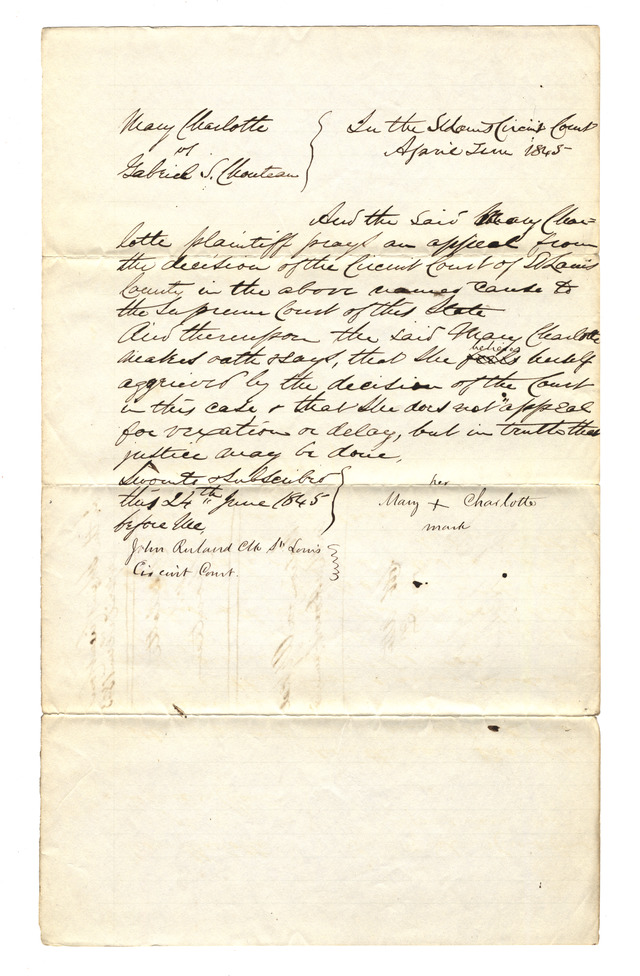 Mary Charlotte
vs
Gabriel S. Chouteau
In the St Louis Circuit Court
April Term 1845
And the said Mary Char-
lotte plaintiff prays an appeal from
the decision of the Circuit Court of St Louis
County in the above named cause to
the Supreme Court of this State
And thereupon the said Mary Charlotte
makes oath & says, that she believes herself
aggrieved by the decision of the Court
in this case & that she does not appeal
for vexation or delay, but in truth that
justice may be done,
Sworn to & subscribed
this 24th June 1845
before me,
John Ruland Clk St Louis
Circuit Court.
her
Mary + Charlotte
mark